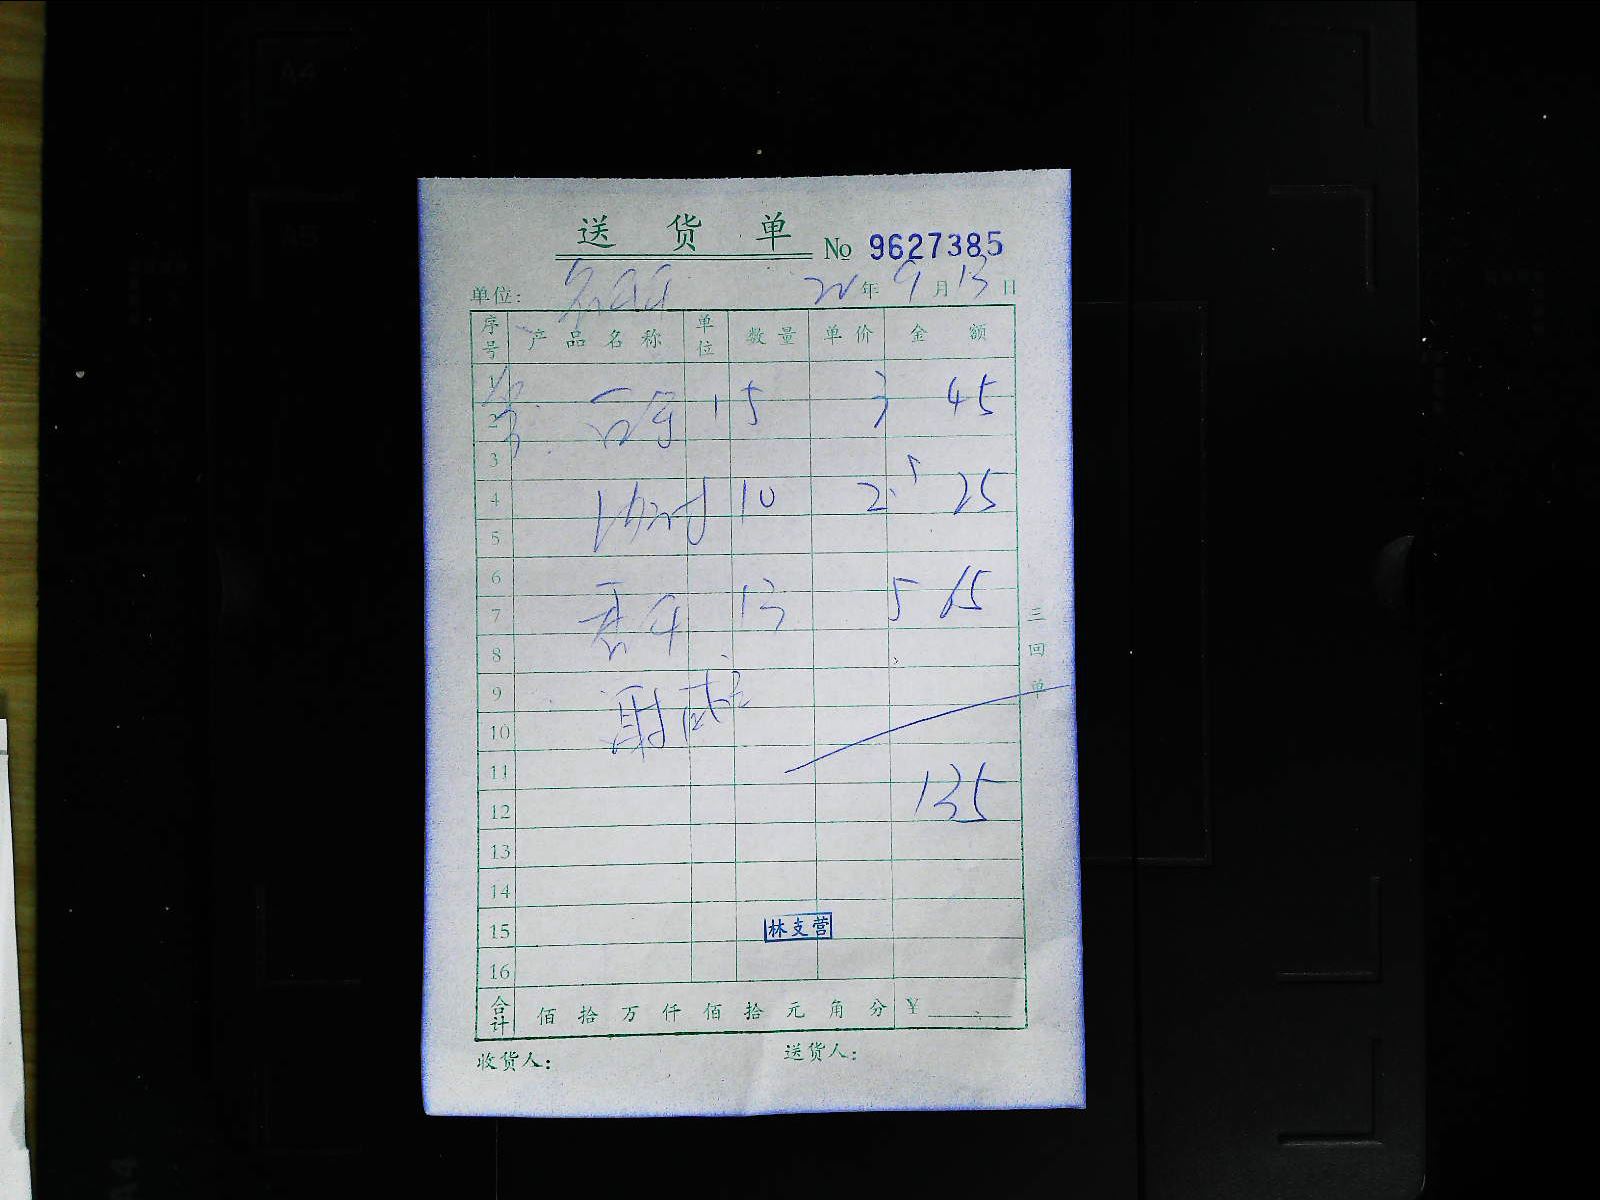 送货单 No 9627385
单位: 22年9月13日
序号 产品名称 单位 数量 单价 金额
1
2 15 3 45
3
4 10 2.5 25
5
6
7 13 5 65
8
9
10
11
12 135
13
14
15 林支营
16
合计 佰 拾 万 仟 佰 拾 元 角 分 ¥
收货人: 送货人:
三回单